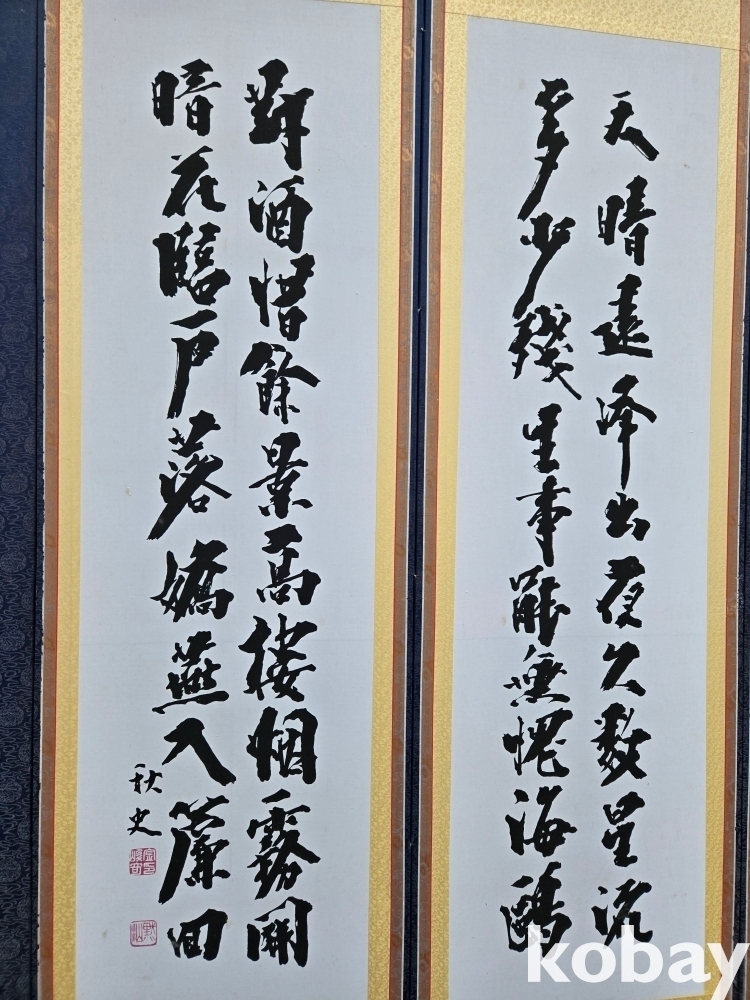 天晴遠峰出夜久數星流
多少殘生事能無愧海鷗
對酒惜餘景高樓烟霧開
暗花臨戶落嬌燕入簾回
秋史
kobay